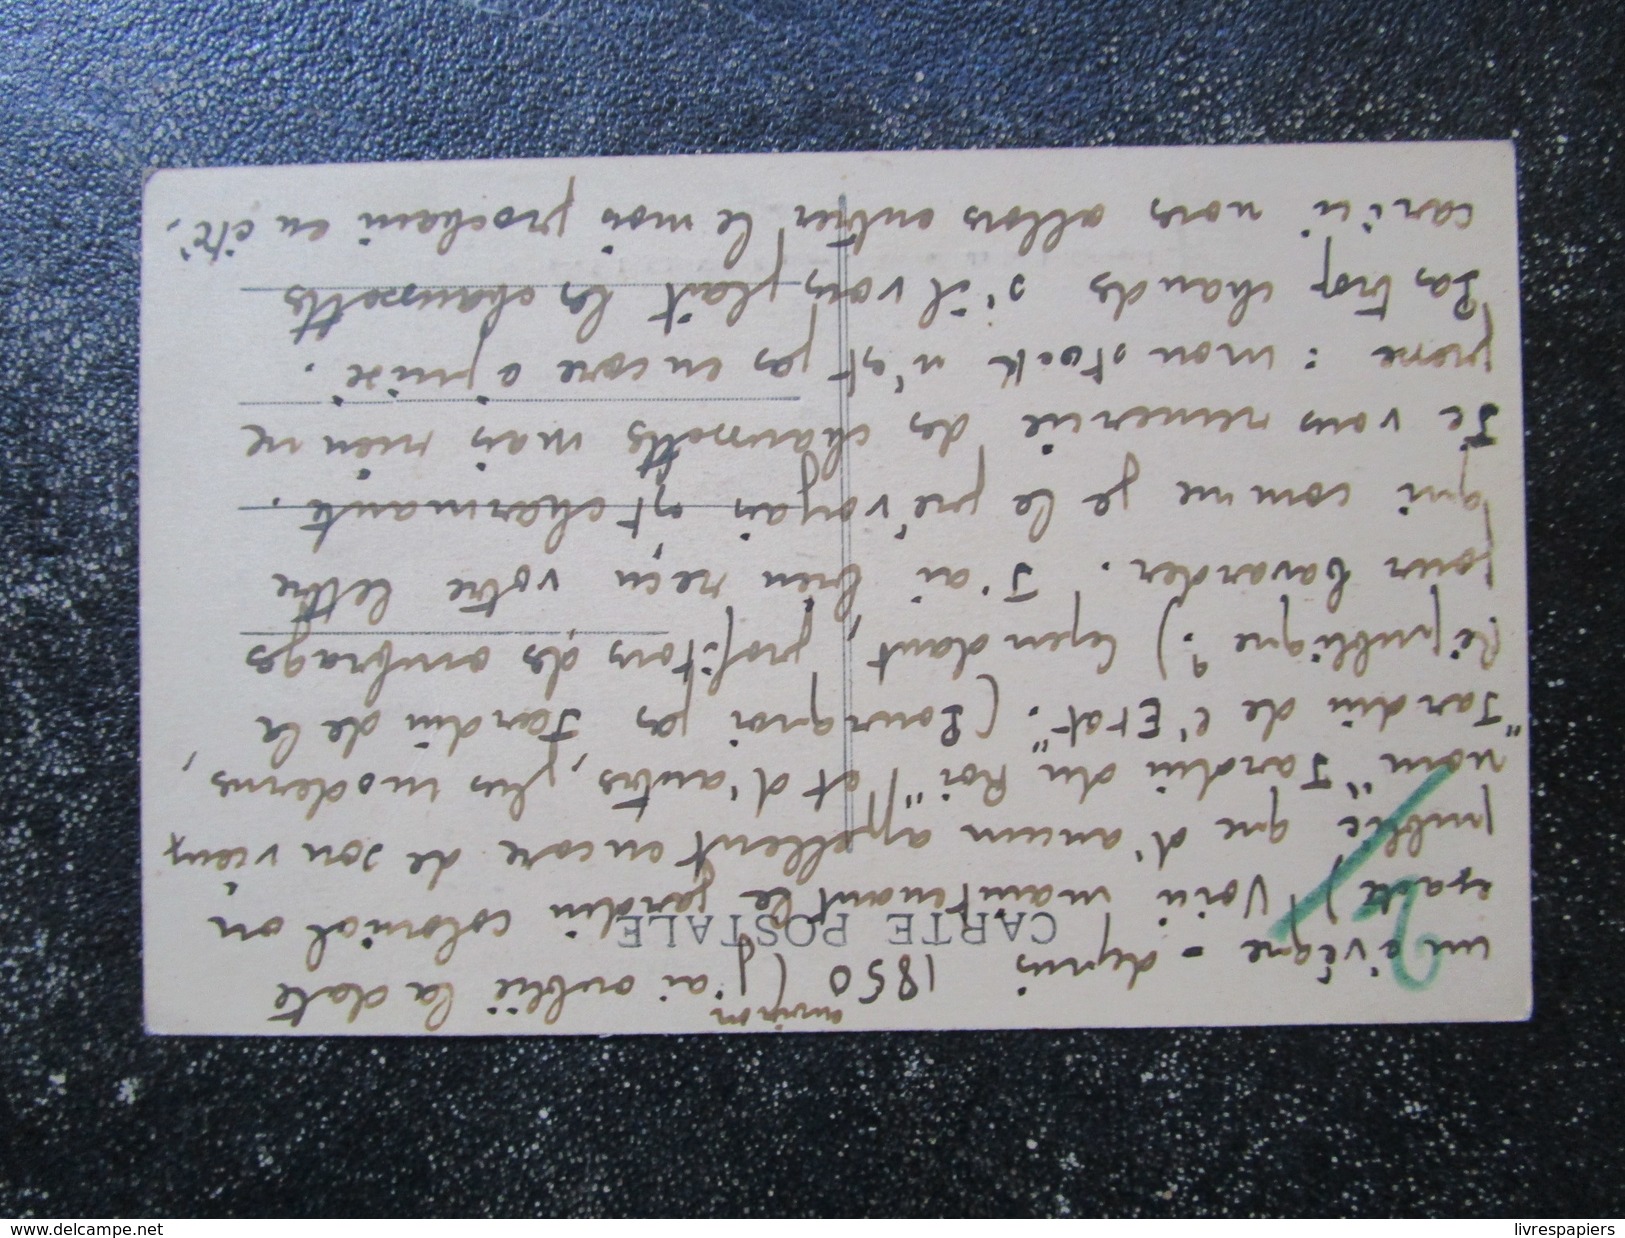 environ
un évêque - depuis 1850 (j'ai oublié la date
exacte) Voici maintenant le jardin colonial ou
CARTE POSTALE
public que d'aucun appellent encore de son vieux
nom "Jardin du Roi" et d'autres, plus modernes,
"Jardin de l'Etat". (Pourquoi pas Jardin de la
République ?) Cependant, profitons des ombrages
pour bavarder. J'ai bien reçu votre lettre
qui comme je le prévoyais est charmante.
Je vous remercie des chaussettes mais rien ne
presse : mon stock n'est pas encore épuisé.
Pas trop chauds s'il vous plait les chaussettes
car ici nous allons entrer le mois prochain en été.
2
delcampe.net
livrespapiers